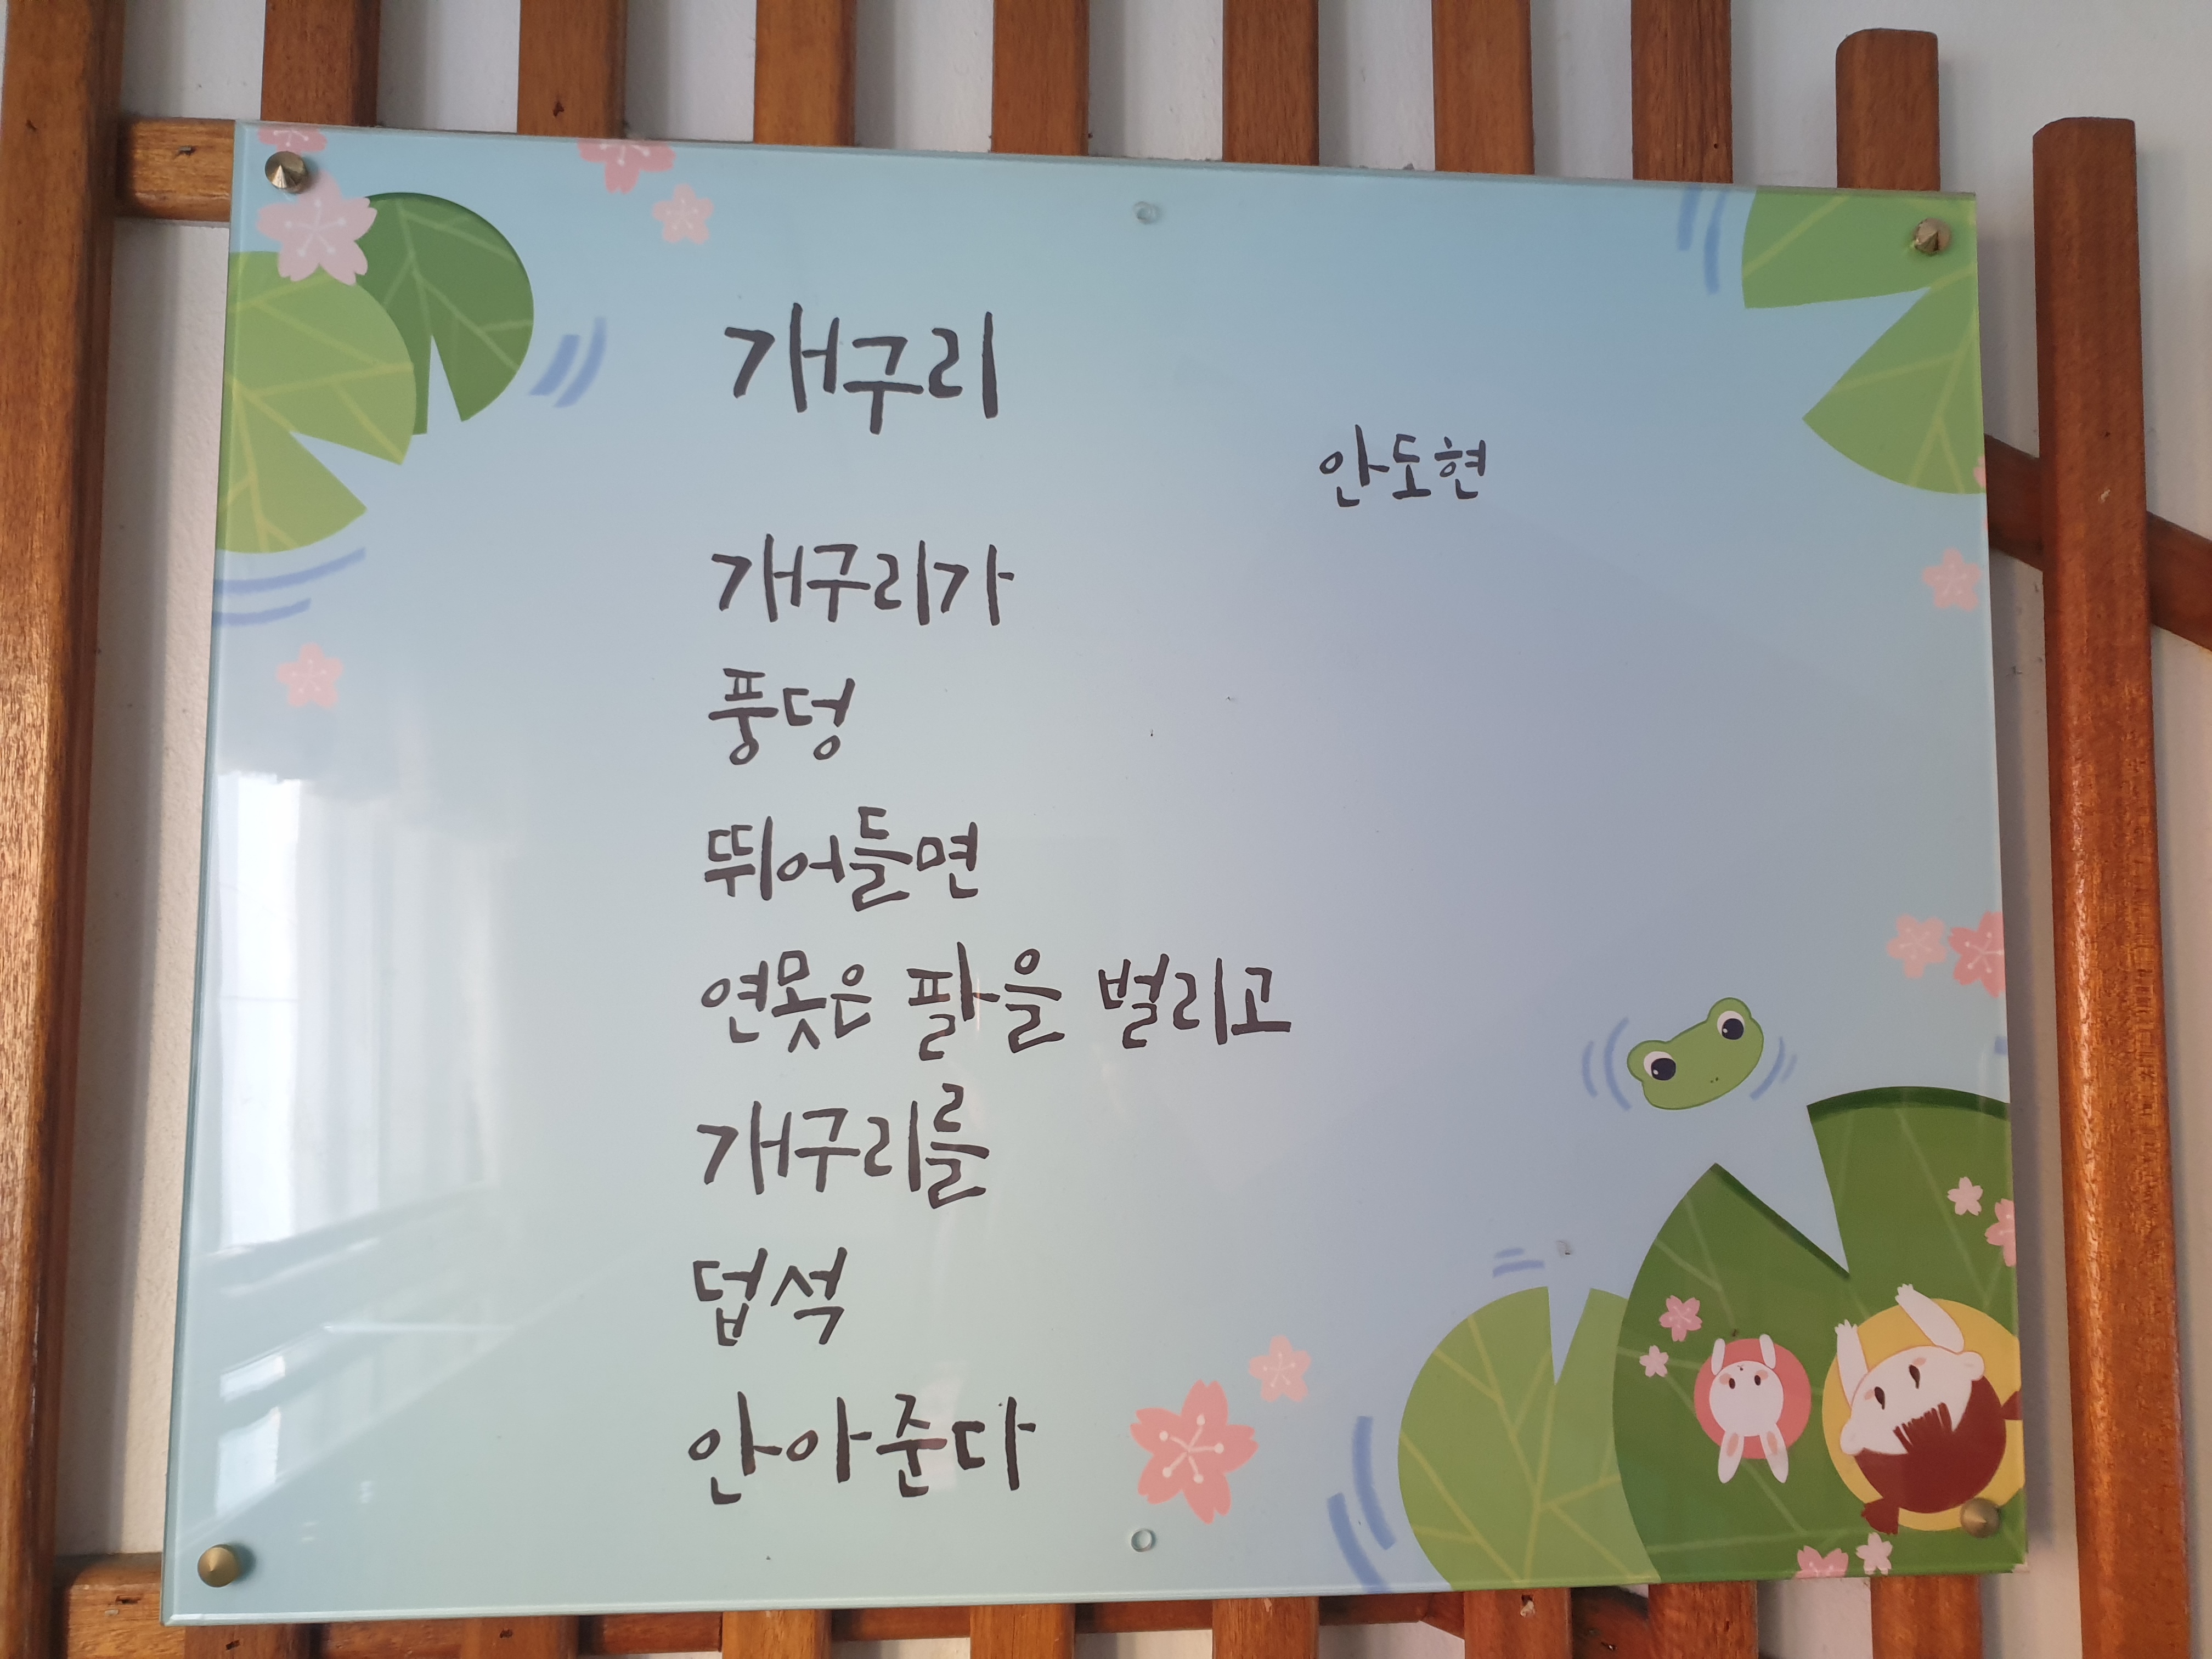 개구리
안도현
개구리가
풍덩
뛰어들면
연못은 팔을 벌리고
개구리를
덥석
안아준다